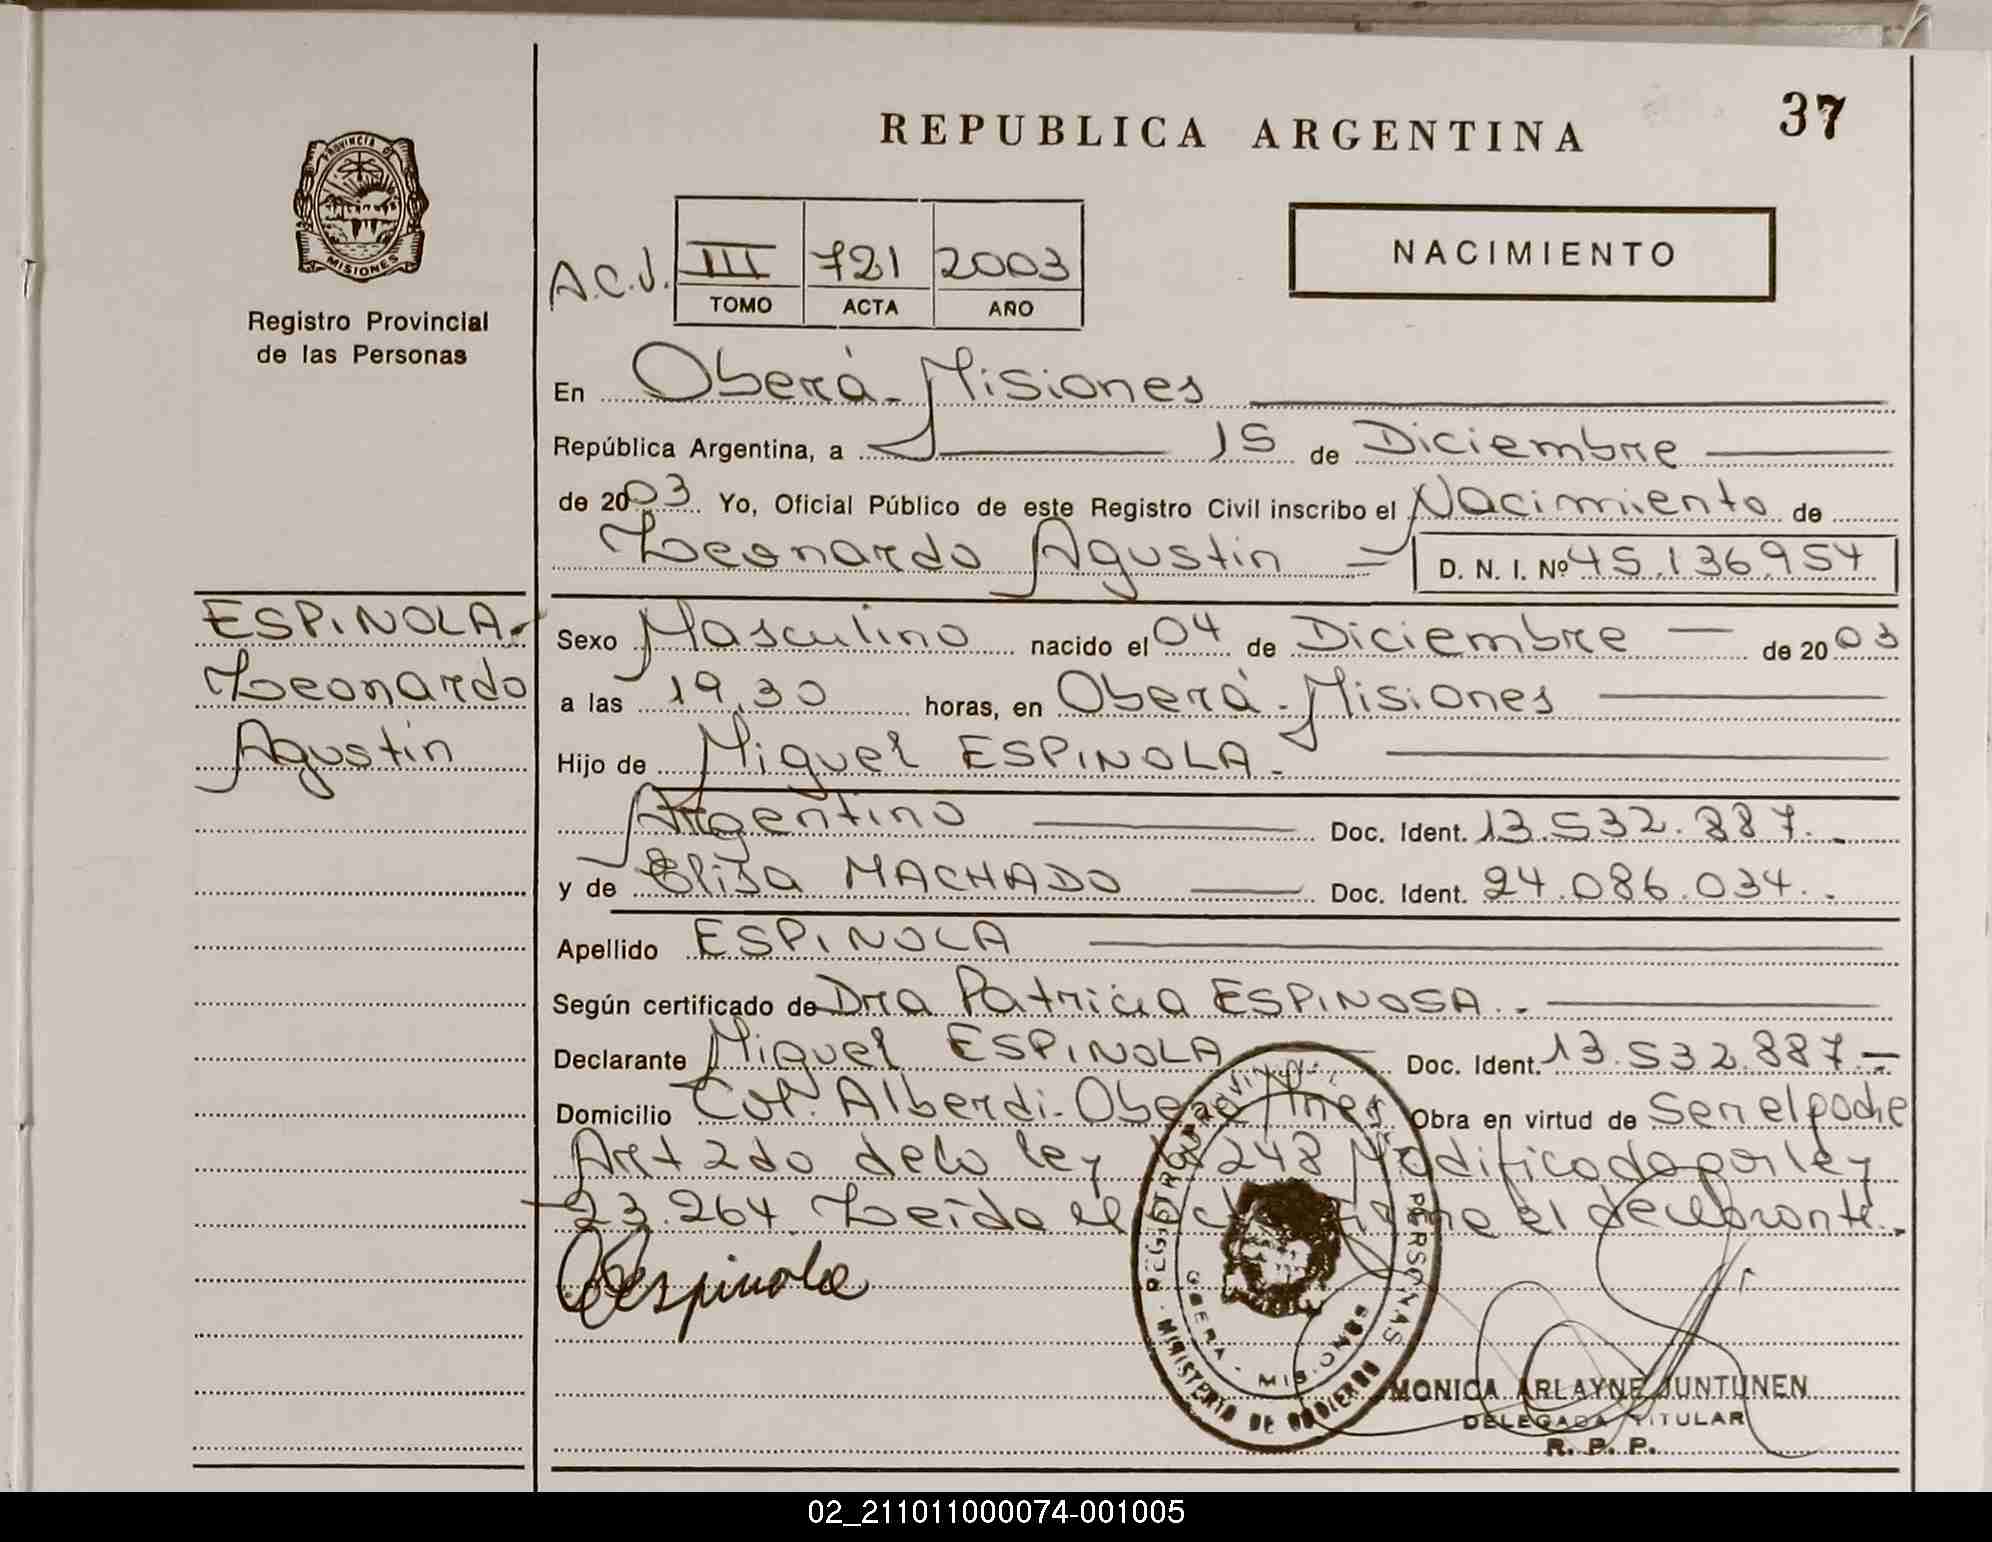 REPUBLICA ARGENTINA
37
PROVINCIA DE
MISIONES
Registro Provincial
de las Personas
A.C.J.
III 721 2003
TOMO ACTA AÑO
NACIMIENTO
En Oberá-Misiones
República Argentina, a 15 de Diciembre
de 2003 Yo, Oficial Público de este Registro Civil inscribo el Nacimiento de
Leonardo Agustin
D. N. I. Nº 45.136.954
ESPINOLA.
Leonardo
Agustín
Sexo Masculino nacido el 04 de Diciembre de 2003
a las 19,30 horas, en Oberá-Misiones
Hijo de Miguel ESPINOLA.
Argentino Doc. Ident. 13.532.887.
y de Elisa MACHADO Doc. Ident. 24.086.034.
Apellido ESPINOLA
Según certificado de Dra Patricia ESPINOSA.
Declarante Miguel ESPINOLA Doc. Ident. 13.532.887.
Domicilio Col. Alberdi-Oberá Mnes Obra en virtud de Ser el padre
Art 2do de la ley 18248 Modificada por ley
23.264 Leída el acta firma el declarante.
Espinola
REGISTRO PROVINCIAL PERSONAS
OBERA - MISIONES
MINISTERIO DE GOBIERNO
MONICA ARLAYNE JUNTUNEN
DELEGADA TITULAR
R. P. P.
02_211011000074-001005